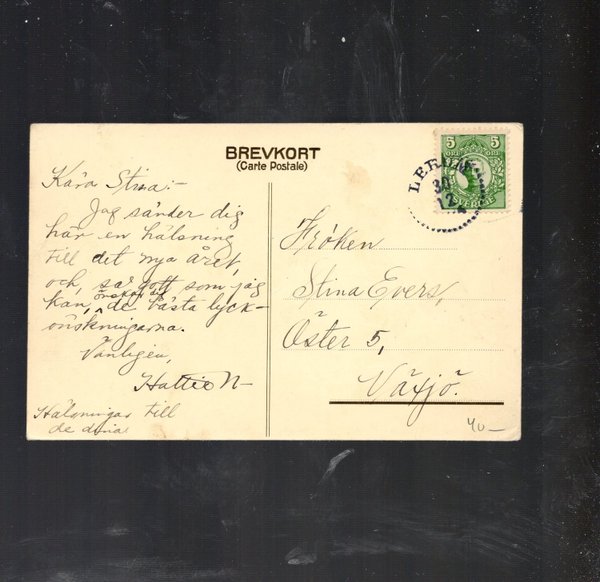 BREVKORT
(Carte Postale)
Kära Stina:-
Jag sänder dig
här en hälsning
till det nya året,
och, så gott som jag
kan, önskar dig de bästa lyck-
önskningarna.
Vänligen,
Hattie N-
Hälsningar till
de dina.
5 5
LERUM
30
12
Fröken
Stina Evers,
Öster 5,
Växjö.
40-